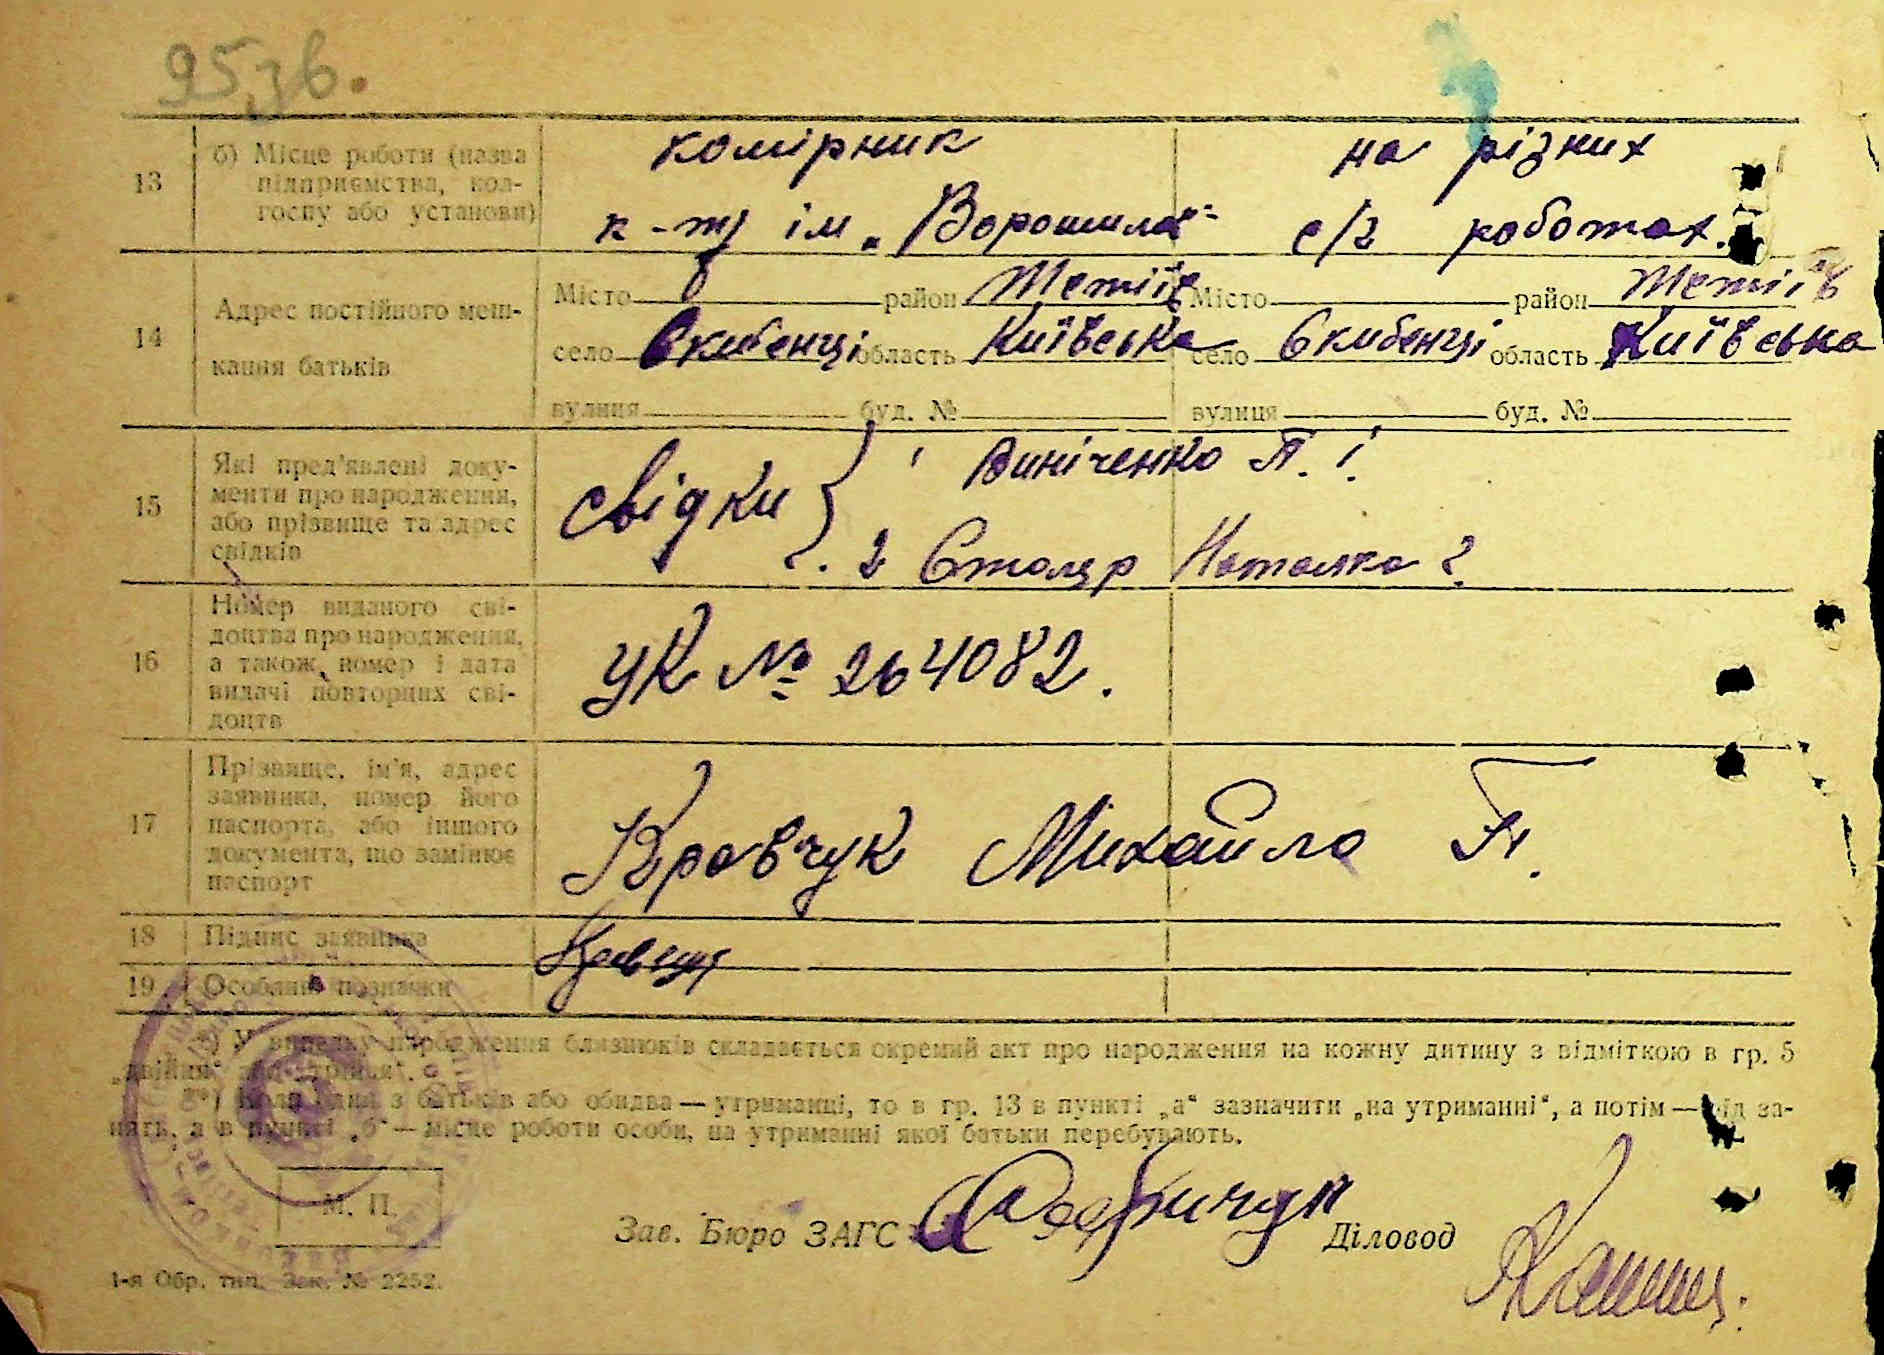 95 зв.
13 б) Місце роботи (назва підприємства, колгоспу або установи)
комірник на різних
к-ж ім. „Ворошила" с/г роботах.
14 Адрес постійного мешкання батьків
Місто район Тетіїв Місто район Тетіїв
село Скибенці область Київська село Скибенці область Київська
вулиця буд. № вулиця буд. №
15 Які пред'явлені документи про народження, або прізвище та адрес свідків
свідки } 1 Виніченко П. І.
2 Столяр Наталка
16 Номер виданого свідоцтва про народження, а також, номер і дата видачі повторних свідоцтв
УК № 264082.
17 Прізвище, ім'я, адрес заявника, номер його паспорта, або іншого документа, що замінює паспорт
Кравчук Михайло П.
18 Підпис заявника
19 Особливі позначки
*) У випадку народження близнюків складається окремий акт про народження на кожну дитину з відміткою в гр. 5
„двійня" або „трійня".
**) Коли один з батьків або обидва — утриманці, то в гр. 13 в пункті „а" зазначити „на утриманні", а потім — від за-
нять, а в пункті „б" — місце роботи особи, на утриманні якої батьки перебувають.
М. П.
Зав. Бюро ЗАГС Діловод
1-я Обр. тип. Зак. № 2252.